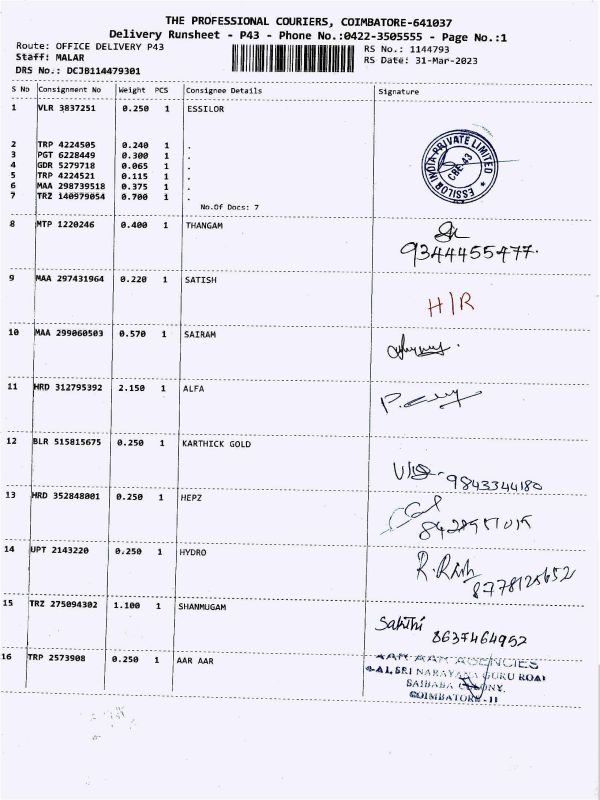 THE PROFESSIONAL COURIERS, COIMBATORE-641037
Delivery Runsheet - P43 - Phone No.:0422-3505555 - Page No.:1
Route: OFFICE DELIVERY P43 RS No.: 1144793
Staff: MALAR RS Date: 31-Mar-2023
DRS No.: DCJB114479301
S No Consignment No Weight PCS Consignee Details Signature
1 VLR 3837251 0.250 1 ESSILOR
ESSILOR INDIA PRIVATE LIMITED CBE-43
2 TRP 4224505 0.240 1 .
3 PGT 6228449 0.300 1 .
4 GDR 5279718 0.065 1 .
5 TRP 4224521 0.115 1 .
6 MAA 298739518 0.375 1 .
7 TRZ 140979054 0.700 1 .
No.Of Docs: 7
8 MTP 1220246 0.400 1 THANGAM
9344455477.
9 MAA 297431964 0.220 1 SATISH
H/R
10 MAA 299060503 0.570 1 SAIRAM
11 HRD 312795392 2.150 1 ALFA
12 BLR 515815675 0.250 1 KARTHICK GOLD
9843344180
13 HRD 352848001 0.250 1 HEPZ
14 UPT 2143220 0.250 1 HYDRO
8778125652
15 TRZ 275094302 1.100 1 SHANMUGAM
Sakthi
8637464952
16 TRP 2573908 0.250 1 AAR AAR
AAR AAR AGENCIES
SRI NARAYANA GURU ROAD
SAIBABA COLONY,
COIMBATORE - 11